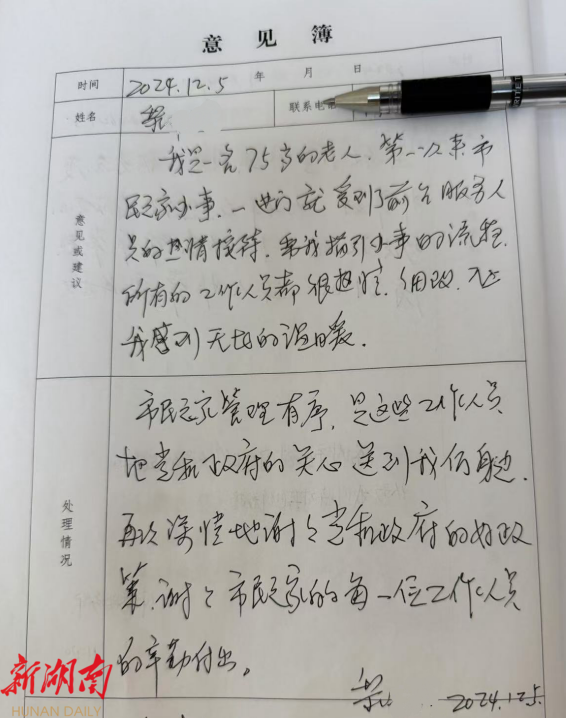 意见簿
时间 2024.12.5 年 月 日
姓名 联系电
意见或建议
我是一名75岁的老人,第一次来市
民之家办事,一进门就受到了前台服务人
员的热情接待,给我指引办事的流程,
所有的工作人员都很热情,细致,
我感到无比的温暖。
处理情况
市民之家管理有序,是这些工作人员
把党和政府的关心送到我们身边,
再次深情地谢谢党和政府的好政
策,谢谢市民之家的每一位工作人员
的辛勤付出。
2024.12.5.
新湖南
HUNAN DAILY